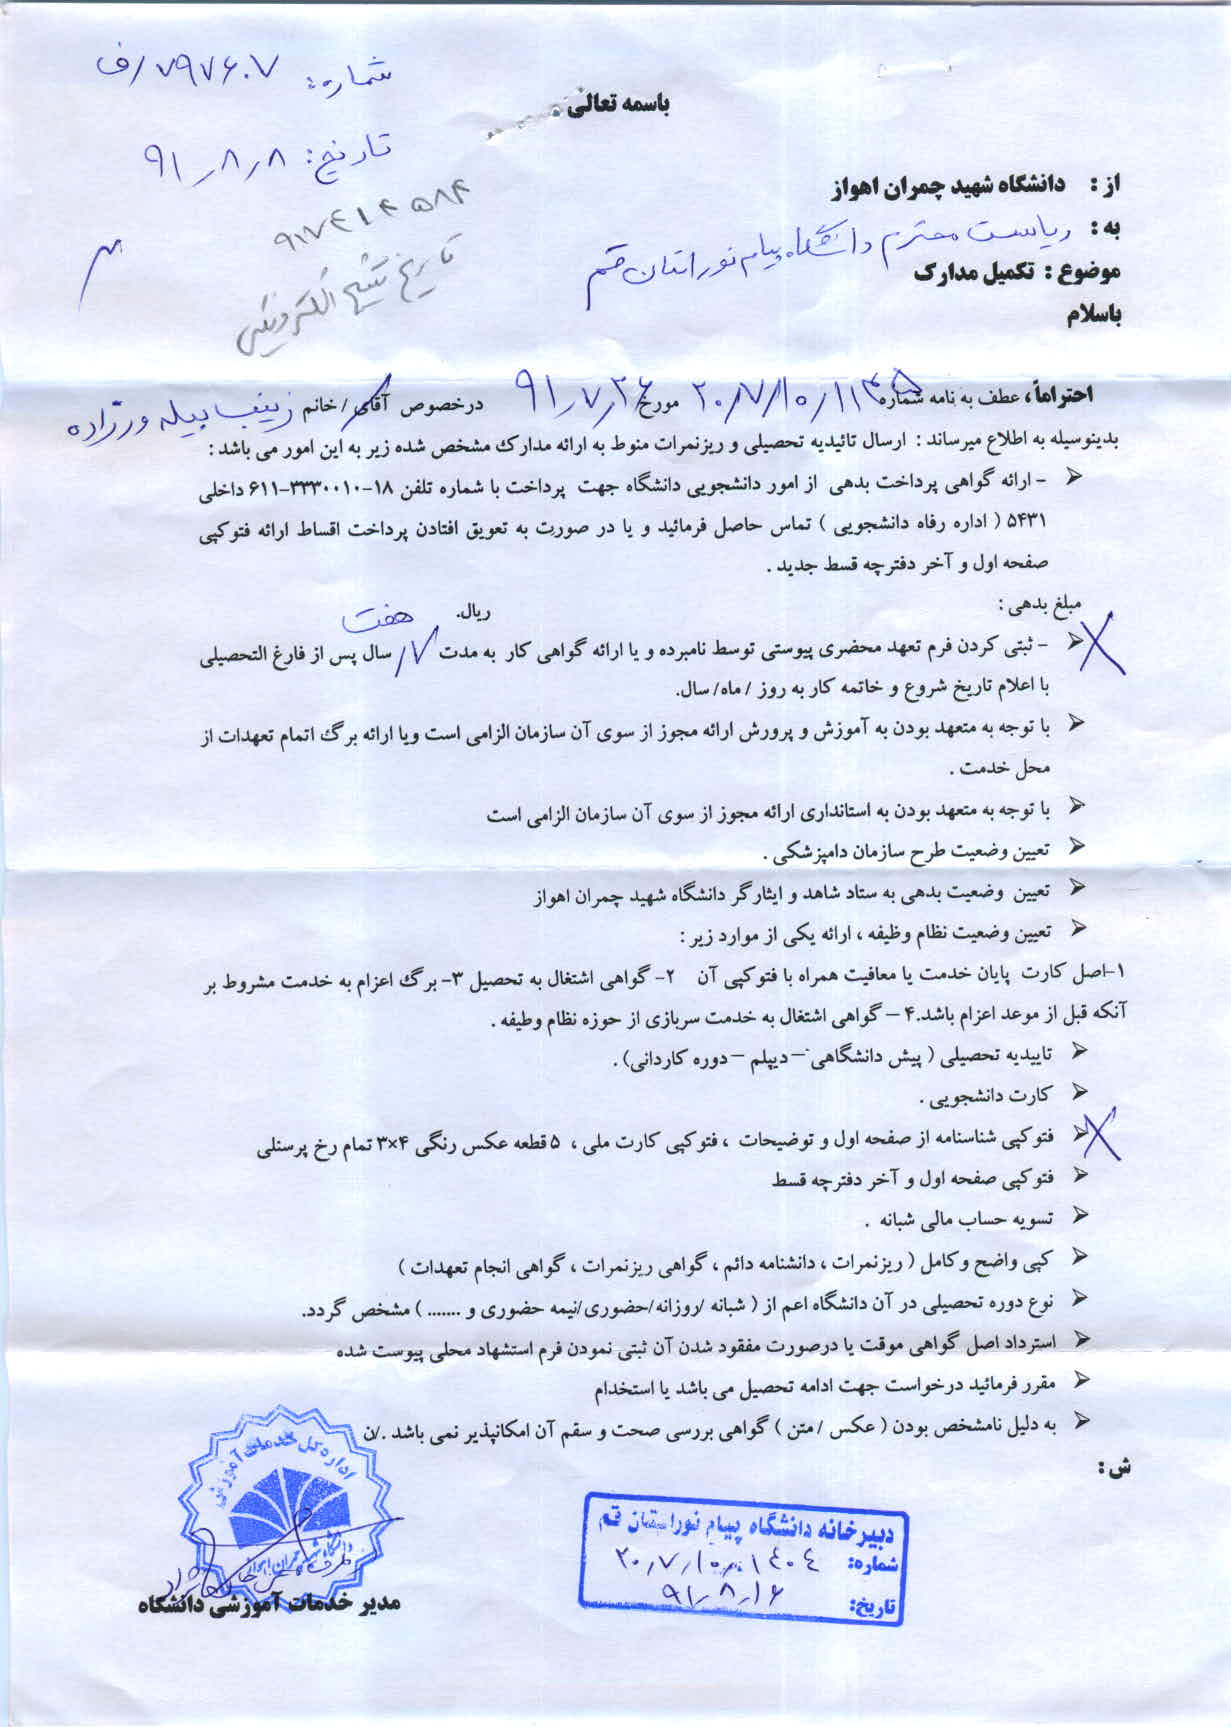 شماره: ۷۹۷۶۰۷/ف
باسمه تعالی
تاریخ: ۹۱/۸/۸
از : دانشگاه شهید چمران اهواز
به : ریاست محترم دانشگاه پیام نور استان قم
موضوع : تکمیل مدارک
باسلام
احتراماً، عطف به نامه شماره ۲۰/۷/۱۰/۱۱۳۵ مورخ ۹۱/۷/۲۶ درخصوص آقای/خانم زینب پیله ورزاده
بدینوسیله به اطلاع میرساند : ارسال تائیدیه تحصیلی و ریزنمرات منوط به ارائه مدارک مشخص شده زیر به این امور می باشد :
- ارائه گواهی پرداخت بدهی از امور دانشجویی دانشگاه جهت پرداخت با شماره تلفن ۱۸-۳۳۳۰۰۱۰-۶۱۱ داخلی
۵۴۳۱ ( اداره رفاه دانشجویی ) تماس حاصل فرمائید و یا در صورت به تعویق افتادن پرداخت اقساط ارائه فتوکپی
صفحه اول و آخر دفترچه قسط جدید .
مبلغ بدهی : ریال.
هفت
- ثبتی کردن فرم تعهد محضری پیوستی توسط نامبرده و یا ارائه گواهی کار به مدت ۷/ سال پس از فارغ التحصیلی
با اعلام تاریخ شروع و خاتمه کار به روز /ماه/ سال.
با توجه به متعهد بودن به آموزش و پرورش ارائه مجوز از سوی آن سازمان الزامی است ویا ارائه برگ اتمام تعهدات از
محل خدمت .
با توجه به متعهد بودن به استانداری ارائه مجوز از سوی آن سازمان الزامی است
تعیین وضعیت طرح سازمان دامپزشکی .
تعیین وضعیت بدهی به ستاد شاهد و ایثارگر دانشگاه شهید چمران اهواز
تعیین وضعیت نظام وظیفه ، ارائه یکی از موارد زیر :
۱-اصل کارت پایان خدمت یا معافیت همراه با فتوکپی آن ۲- گواهی اشتغال به تحصیل ۳- برگ اعزام به خدمت مشروط بر
آنکه قبل از موعد اعزام باشد.۴ – گواهی اشتغال به خدمت سربازی از حوزه نظام وظیفه .
تاییدیه تحصیلی ( پیش دانشگاهی – دیپلم – دوره کاردانی) .
کارت دانشجویی .
فتوکپی شناسنامه از صفحه اول و توضیحات ، فتوکپی کارت ملی ، ۵ قطعه عکس رنگی ۴×۳ تمام رخ پرسنلی
فتوکپی صفحه اول و آخر دفترچه قسط
تسویه حساب مالی شبانه .
کپی واضح وکامل ( ریزنمرات ، دانشنامه دائم ، گواهی ریزنمرات ، گواهی انجام تعهدات )
نوع دوره تحصیلی در آن دانشگاه اعم از ( شبانه /روزانه/حضوری/نیمه حضوری و ....... ) مشخص گردد.
استرداد اصل گواهی موقت یا درصورت مفقود شدن آن ثبتی نمودن فرم استشهاد محلی پیوست شده
مقرر فرمائید درخواست جهت ادامه تحصیل می باشد یا استخدام
به دلیل نامشخص بودن ( عکس /متن ) گواهی بررسی صحت و سقم آن امکانپذیر نمی باشد ./ن
ش :
اداره کل خدمات آموزشی
دانشگاه شهید چمران اهواز
مدیر خدمات آموزشی دانشگاه
دبیرخانه دانشگاه پیام نور استان قم
شماره: ۲۰/۷/۱۰/۱۴۰۴
تاریخ: ۹۱/۸/۱۶